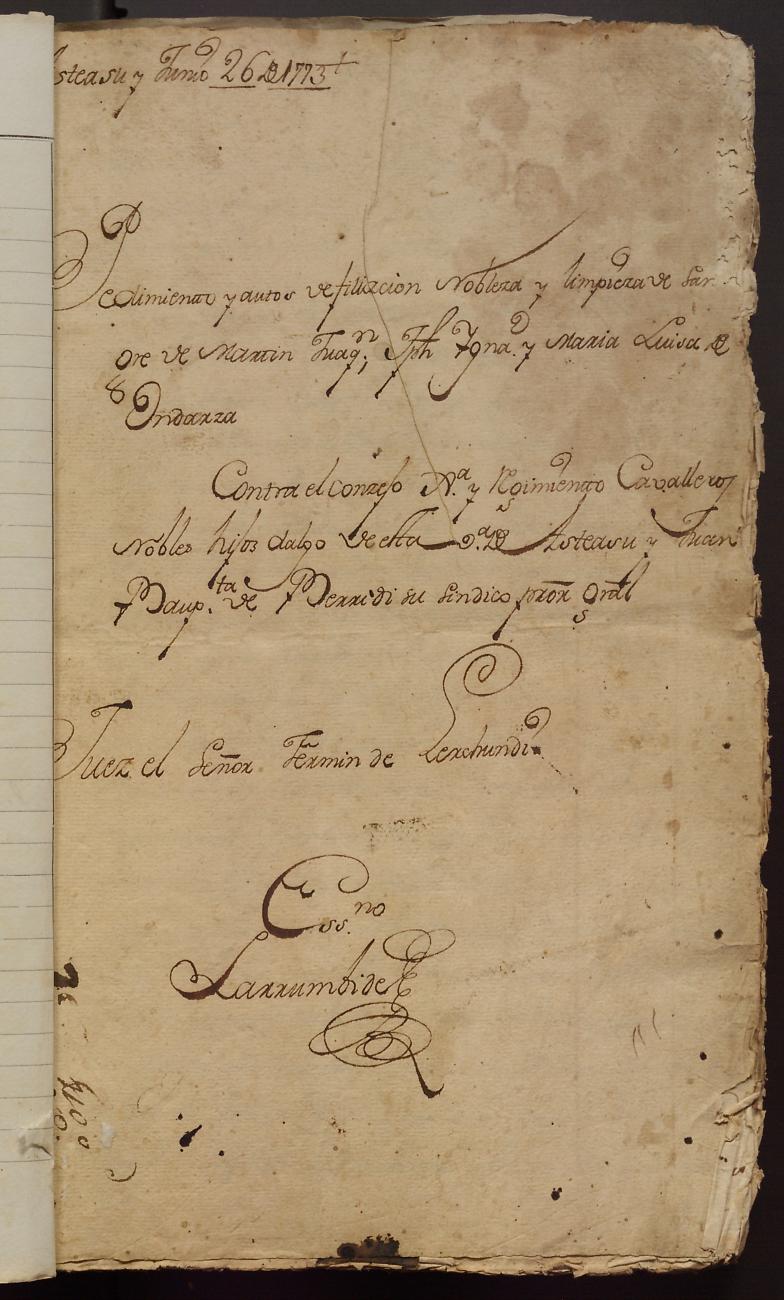 Asteasu y Junio 26 de 1773
Pedimiento y autos de filiacion Nobleza y limpieza de San
gre de Martin Juaqn. Jph Ygna. y Maria Luisa de
Ondarza
Contra el Conzejo Na. y Rgimiento Cavalleros
Nobles hijos dalgo de esta va. de Asteasu y Juan
Baupta. de Berridi su sindico pror Gral
Juez el Señor Fermin de Lerchundi
Essno
Larrumbide